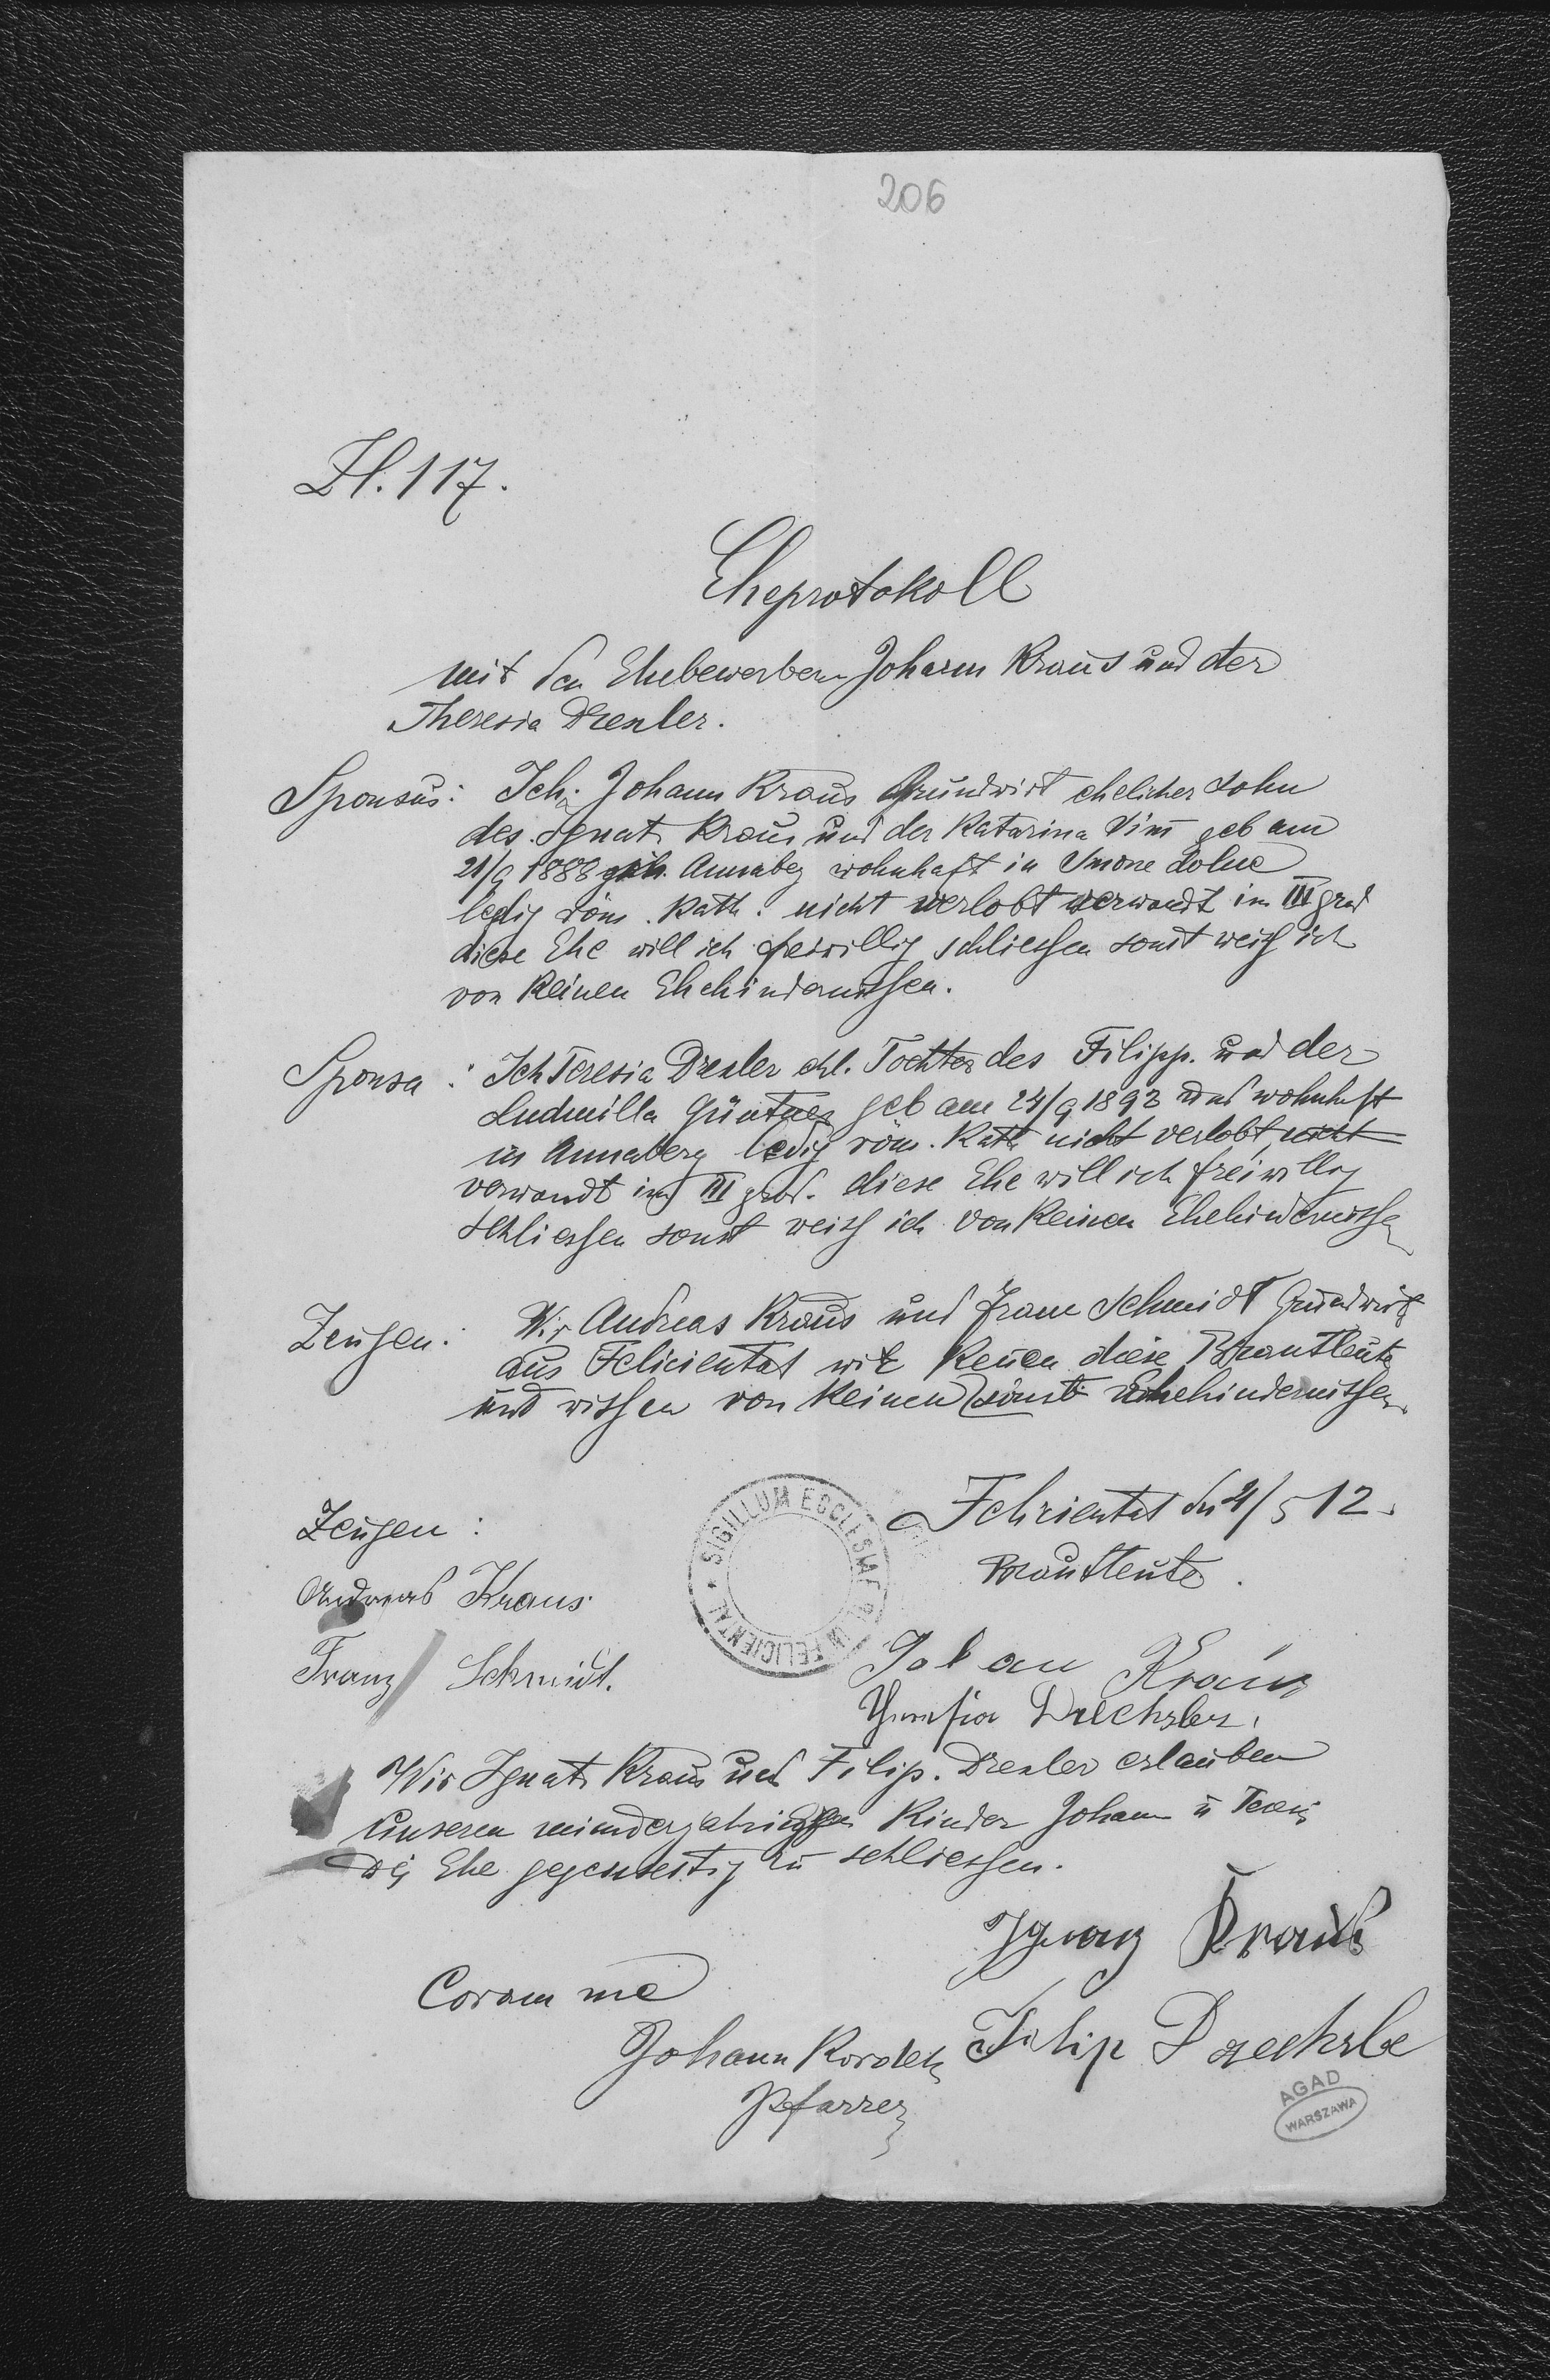 206
Zl. 117.
Eheprotokoll
mit den Ehebewerbern Johann Kraus und der
Theresia Drexler.
Sponsus: Ich Johann Kraus Grundwirt ehelicher Sohn
des Ignatz Kraus und der Katarina geb am
21/9 1888 Annabeg wohnhaft in Smorze dolne
ledig röm. Kath. nicht verlobt verwandt im III grad
diese Ehe will ich freiwillig schliessen sonst weiss ich
von keinen Ehehindernissen.
Sponsa: Ich Teresia Drexler ehl. Tochter des Filipp. und der
Ludmilla Güntner geb am 24/9 1893 und wohnhaft
in Annaberg ledig röm. Kath nicht verlobt nicht
verwandt im III grad. diese Ehe will ich freiwillig
schliessen sonst weiss ich von keinen Ehehindernissen
Zeugen: Wir Andreas Kraus und Franz Schmidt Grundwirt
aus Felicientat wir kenen diese Brautleute
und wissen von keinen sonst Ehehindernissen.
Felicientat den 4/5 12.
Zeugen:
Brautleute.
Andreas Kraus
Franz Schmidt.
SIGILLUM ECCLESIAE IN FELICIENTAL
Johan Kraus
Theresia Drechsler.
Wir Ignatz Kraus und Filip. Drexler erlauben
unseren minderjahrigen Kinder Johann u
die Ehe gegenseitig zu schliessen.
Ignaz Kraus
Coram me
Filip Drechsle
Johann
Pfarrer
AGAD
WARSZAWA